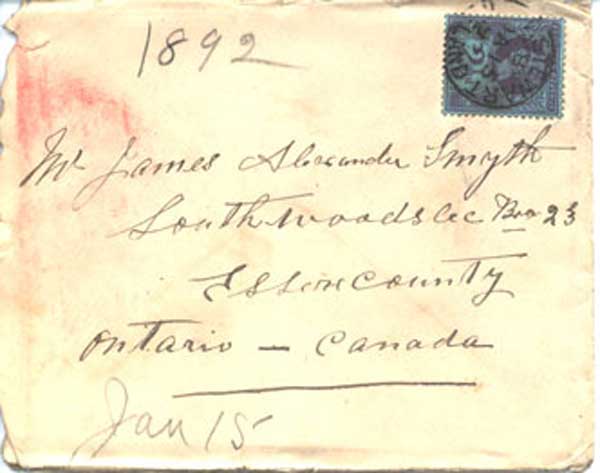 1892
Mr James Alexander Smyth
South woodslee Box 23
Essex county
Ontario — Canada
Jan 15